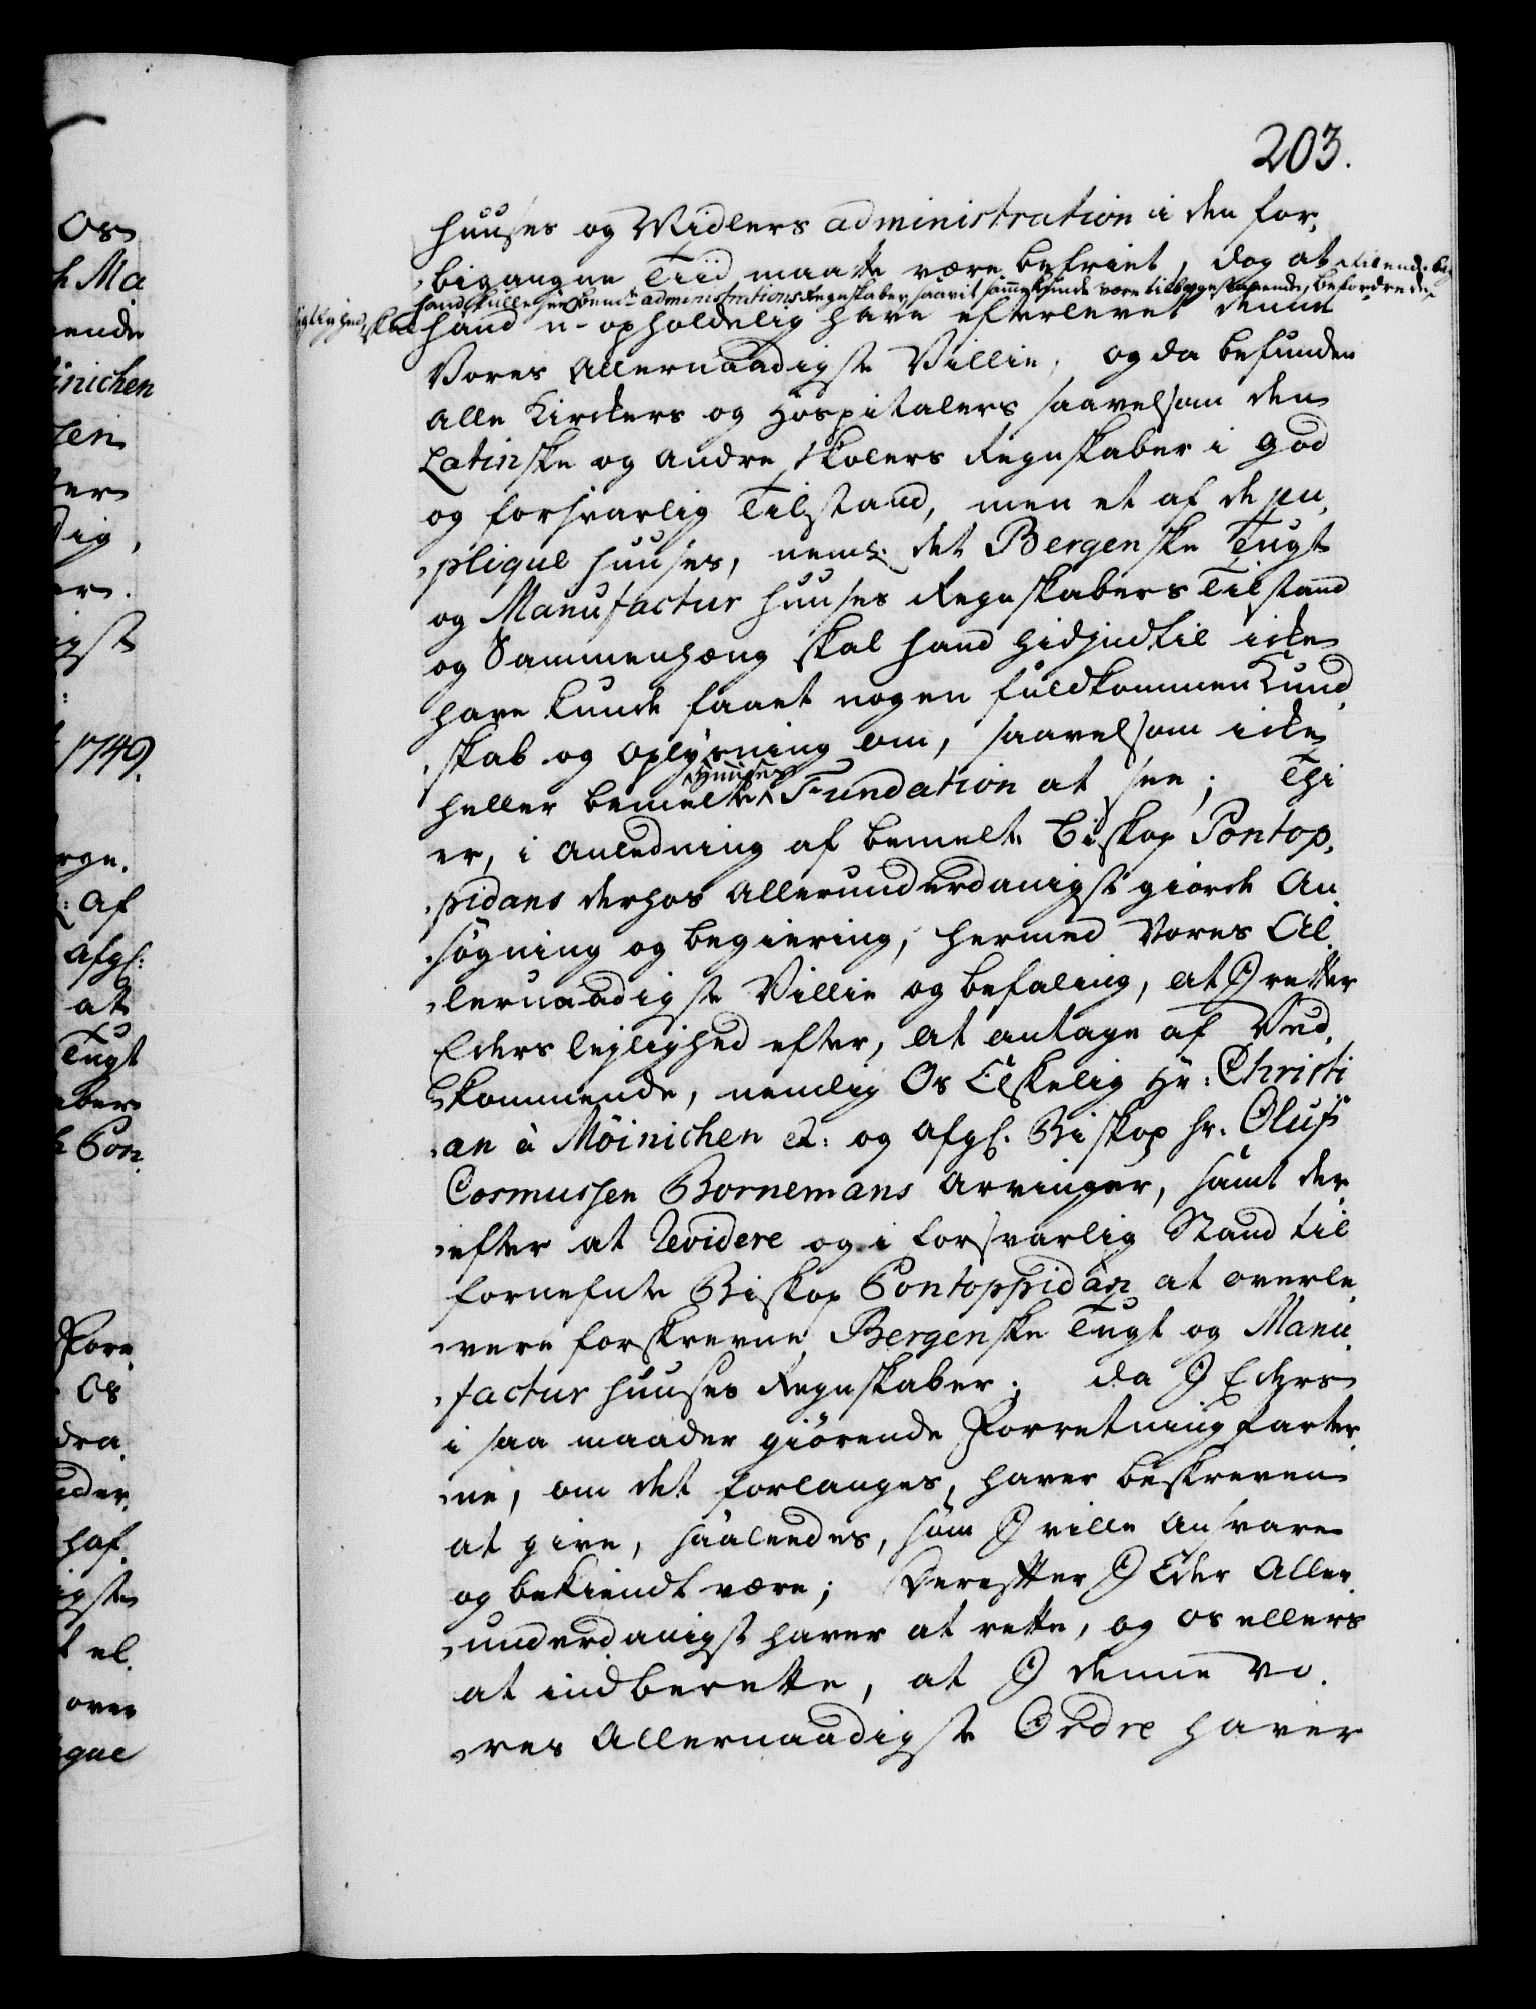 203.
huuses og Midlers administration i den for,
,bigangne Tiid maatte være befriet, dog at
hand skulle administrations Regnskaber, saavit samme kunde være tilbage staaende, befordre
skal hand u-opholdelig have efterlevet denne
Vores Allernaadigste Villie, og da befunden
alle Kirckers og Hospitalers saavelsom den
Latinske og andre Skolers Regnskaber i god
og forsvarlig Tilstand, men et af de pu,
,plique huuses, neml: det Bergenske Tugt
og Manufactur huuses Regnskabers Tilstand
og Sammenhæng skal hand hidindtil icke
have kunde faaet nogen fuldkommen Kund,
,skab og oplysning om, saavelsom icke
heller bemelte Huuses Fundation at see; Thi
er, i anledning af bemelte Biskop Pontop,
,pidans derhos allerunderdanigst giorde An,
,søgning og begiering, hermed Vores Al,
,lernaadigste Villie og befaling, at I retter
Eders lejlighed efter, at antage af Ved,
,kommende, nemlig Os Elskelig Hr: Christi
,an à Möinichen et: og afgl. Biskop Hr. Oluf
Cosmussen Bornemans Arvinger, samt der,
,efter at Revidere og i forsvarlig Stand til
fornefnte Biskop Pontoppidan at overle,
,vere forskrevne Bergenske Tugt og Manu,
,factur huuses Regnskaber; da I Eders
i saa maader giørende Forretning Parter,
,ne, om det forlanges, haver beskreven
at give, saaledes, som I ville ansvare
og bekiendt være; Derefter I Eder Aller,
,underdanigst haver at rette, og os ellers
at indberette, at I denne Vo,
,res Allernaadigste Ordre haver
Os
h Ma
ende
inichen
sen
er
ig,
er.
igst
1749.
rge.
: Af
Afgl:
at
Tugt
aber
Pon,
Fore,
Os
dra,
nder,
haf,
igste
t el,
over
que